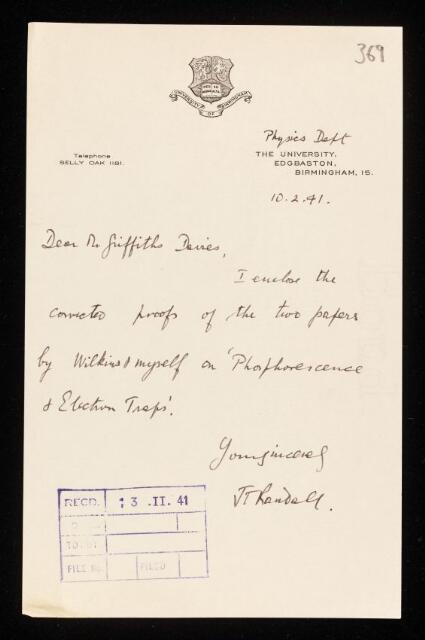 369
UNIVERSITY OF BIRMINGHAM
Physics Dept
Telephone
SELLY OAK 1181.
THE UNIVERSITY,
EDGBASTON,
BIRMINGHAM, 15.
10.2.41.
Dear Mr Griffiths Davies,
I enclose the
corrected proofs of the two papers
by Wilkins & myself on 'Phosphorescence
& Electron Traps'.
Yours sincerely
JT Randall.
RECD. 13 .II. 41
FILE No. FILED